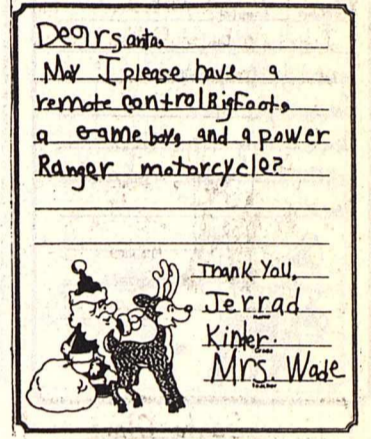 Dear santa,
May I please have a
remote control BigFoot,
a Game boy, and a power
Ranger motorcycle?
Thank You,
Jerrad
Name
Kinder.
Grade
Mrs. Wade
Teacher